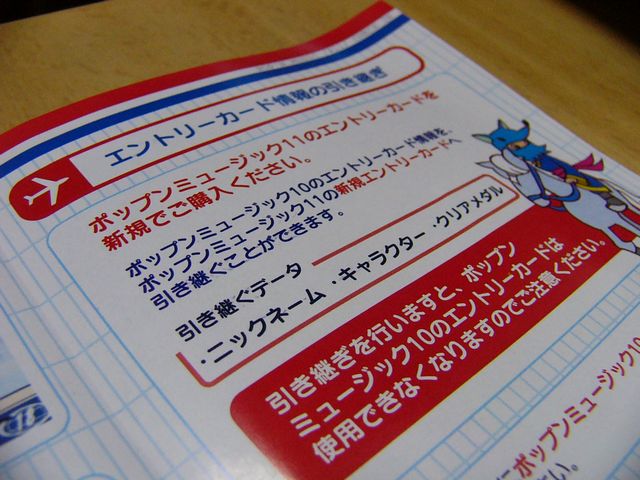 エントリーカード情報の引き継ぎ
ポップンミュージック11のエントリーカードを
新規でご購入ください。
ポップンミュージック10のエントリーカード情報を、
ポップンミュージック11の新規エントリーカードへ
引き継ぐことができます。
引き継ぐデータ
・ニックネーム ・キャラクター ・クリアメダル
引き継ぎを行いますと、ポップン
ミュージック10のエントリーカードは
使用できなくなりますのでご注意ください。
にポップンミュージック10
い。